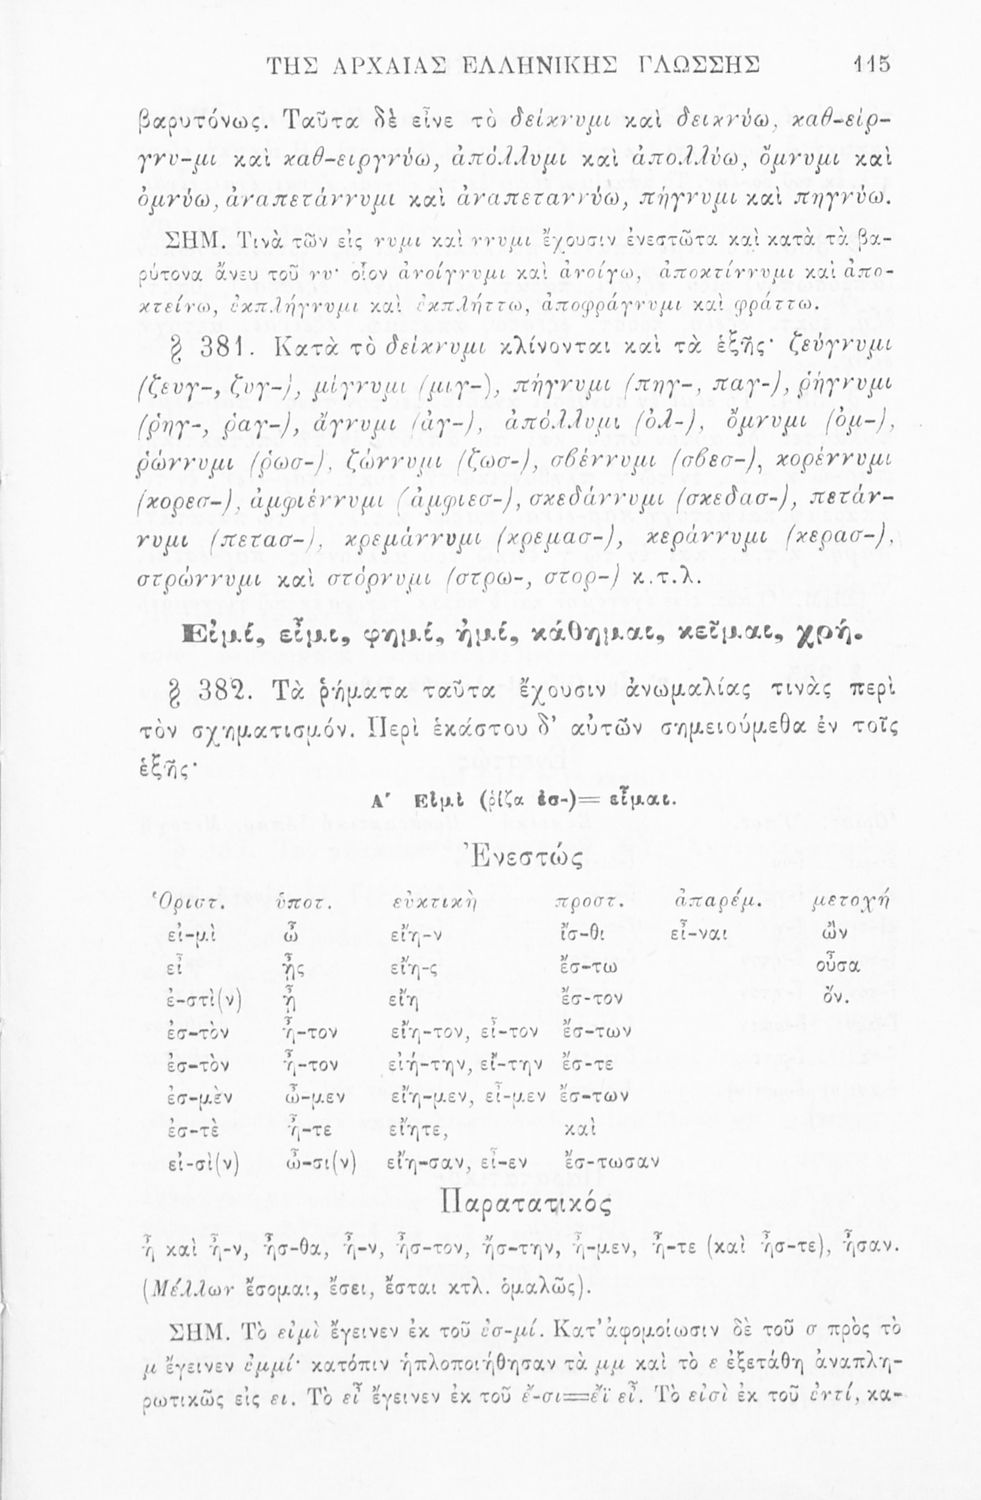 ΤΗΣ ΑΡΧΑΙΑΣ ΕΛΛΗΝΙΚΗΣ ΓΛΩΣΣΗΣ 115
βαρυτόνως. Ταῦτα δὲ εἶνε τὸ δείκνυμι καὶ δεικνύω, καθ-είρ-
γνυ-μι καὶ καθ-ειργνύω, ἀπόλλυμι καὶ ἀπολλύω, ὄμνυμι καὶ
ὀμνύω, ἀναπετάννυμι καὶ ἀναπεταννύω, πήγνυμι καὶ πηγνύω.
ΣΗΜ. Τινὰ τῶν εἰς νυμι καὶ ννυμι ἔχουσιν ἐνεστῶτα καὶ κατὰ τὰ βα-
ρύτονα ἄνευ τοῦ νυ· οἷον ἀνοίγνυμι καὶ ἀνοίγω, ἀποκτίννυμι καὶ ἀπο-
κτείνω, ἐκπλήγνυμι καὶ ἐκπλήττω, ἀποφράγνυμι καὶ φράττω.
§ 381. Κατὰ τὸ δείκνυμι κλίνονται καὶ τὰ ἑξῆς· ζεύγνυμι
(ζευγ-, ζυγ-), μίγνυμι (μιγ-), πήγνυμι (πηγ-, παγ-), ῥήγνυμι
(ῥηγ-, ῥαγ-), ἄγνυμι (ἀγ-), ἀπόλλυμι (ὀλ-), ὄμνυμι (ὀμ-),
ῥώννυμι (ῥωσ-), ζώννυμι (ζωσ-), σβέννυμι (σβεσ-), κορέννυμι
(κορεσ-), ἀμφιέννυμι (ἀμφιεσ-), σκεδάννυμι (σκεδασ-), πετάν-
νυμι (πετασ-), κρεμάννυμι (κρεμασ-), κεράννυμι (κερασ-),
στρώννυμι καὶ στόρνυμι (στρω-, στορ-) κ.τ.λ.
Εἰμί, εἶμι, φημί, ἠμί, κάθημαι, κεῖμαι, χρή.
§ 382. Τὰ ῥήματα ταῦτα ἔχουσιν ἀνωμαλίας τινὰς περὶ
τὸν σχηματισμόν. Περὶ ἑκάστου δ' αὐτῶν σημειούμεθα ἐν τοῖς
ἑξῆς·
Α' Εἰμὶ (ῥίζα ἐσ-)= εἶμαι.
Ἐνεστώς
Ὁριστ. ὑποτ. εὐκτικὴ προστ. ἀπαρέμ. μετοχή
εἰ-μὶ ὦ εἴη-ν ἴσ-θι εἶ-ναι ὢν
εἶ ᾖς εἴη-ς ἔσ-τω οὖσα
ἐ-στὶ(ν) ᾖ εἴη ἔσ-τον ὄν.
ἐσ-τὸν ἦ-τον εἴη-τον, εἶ-τον ἔσ-των
ἐσ-τὸν ἦ-τον εἰή-την, εἴ-την ἔσ-τε
ἐσ-μὲν ὦ-μεν εἴη-μεν, εἶ-μεν ἔσ-των
ἐσ-τὲ ἦ-τε εἴητε, καὶ
εἰ-σὶ(ν) ὦ-σι(ν) εἴη-σαν, εἶ-εν ἔσ-τωσαν
Παρατατικός
ἦ καὶ ἦ-ν, ἦσ-θα, ἦ-ν, ἦσ-τον, ἤσ-την, ἦ-μεν, ἦ-τε (καὶ ἦσ-τε), ἦσαν.
(Μέλλων ἔσομαι, ἔσει, ἔσται κτλ. ὁμαλῶς).
ΣΗΜ. Τὸ εἰμὶ ἔγεινεν ἐκ τοῦ ἐσ-μί. Κατ' ἀφομοίωσιν δὲ τοῦ σ πρὸς τὸ
μ ἔγεινεν ἐμμί· κατόπιν ἡπλοποιήθησαν τὰ μμ καὶ τὸ ε ἐξετάθη ἀναπλη-
ρωτικῶς εἰς ει. Τὸ εἶ ἔγεινεν ἐκ τοῦ ἐ-σι=ἐῒ εἶ. Τὸ εἰσὶ ἐκ τοῦ ἐντί, κα-